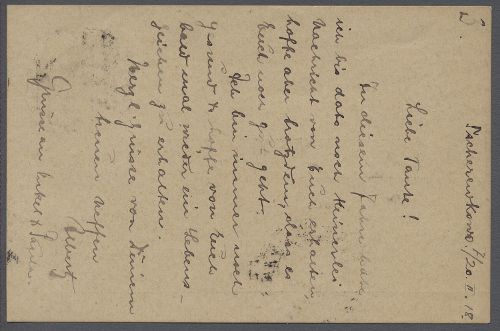 Tscherenkowo, 7/20 II. 18.
Liebe Tante!
In diesem Jahre habe
ich bis dato noch keinerlei
Nachricht von Euch erhalten,
hoffe aber trotzdem, dass es
Euch noch gut geht.
Ich bin immer noch
gesund & hoffe von Euch
bald mal wieder ein Lebens-
zeichen zu erhalten.
Herzl. Grüsse von Deinem
treuen Neffen
Albert
Grüsse an Onkel &